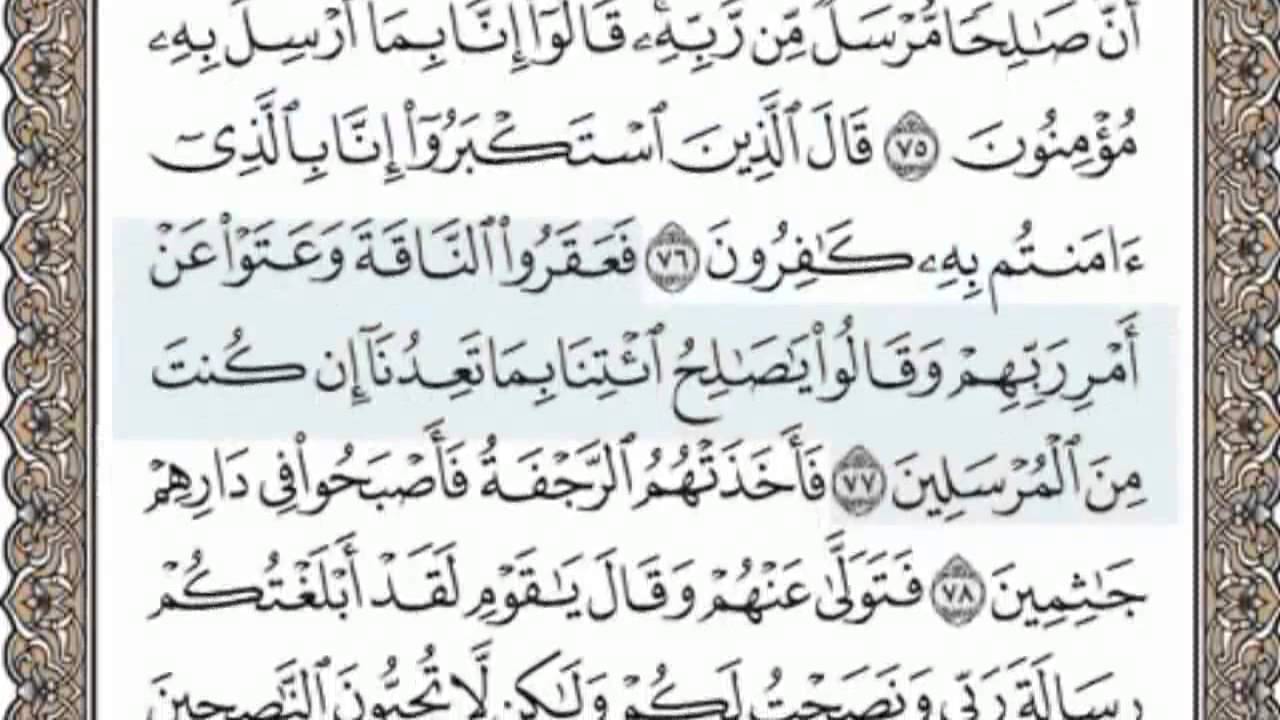 أَنَّ صَٰلِحًا مُّرْسَلٌ مِّن رَّبِّهِۦ ۚ قَالُوٓا۟ إِنَّا بِمَآ أُرْسِلَ بِهِۦ
مُؤْمِنُونَ ٧٥ قَالَ ٱلَّذِينَ ٱسْتَكْبَرُوٓا۟ إِنَّا بِٱلَّذِىٓ
ءَامَنتُم بِهِۦ كَٰفِرُونَ ٧٦ فَعَقَرُوا۟ ٱلنَّاقَةَ وَعَتَوْا۟ عَنْ
أَمْرِ رَبِّهِمْ وَقَالُوا۟ يَٰصَٰلِحُ ٱئْتِنَا بِمَا تَعِدُنَآ إِن كُنتَ
مِنَ ٱلْمُرْسَلِينَ ٧٧ فَأَخَذَتْهُمُ ٱلرَّجْفَةُ فَأَصْبَحُوا۟ فِى دَارِهِمْ
جَٰثِمِينَ ٧٨ فَتَوَلَّىٰ عَنْهُمْ وَقَالَ يَٰقَوْمِ لَقَدْ أَبْلَغْتُكُمْ
رِسَالَةَ رَبِّى وَنَصَحْتُ لَكُمْ وَلَٰكِن لَّا تُحِبُّونَ ٱلنَّٰصِحِينَ